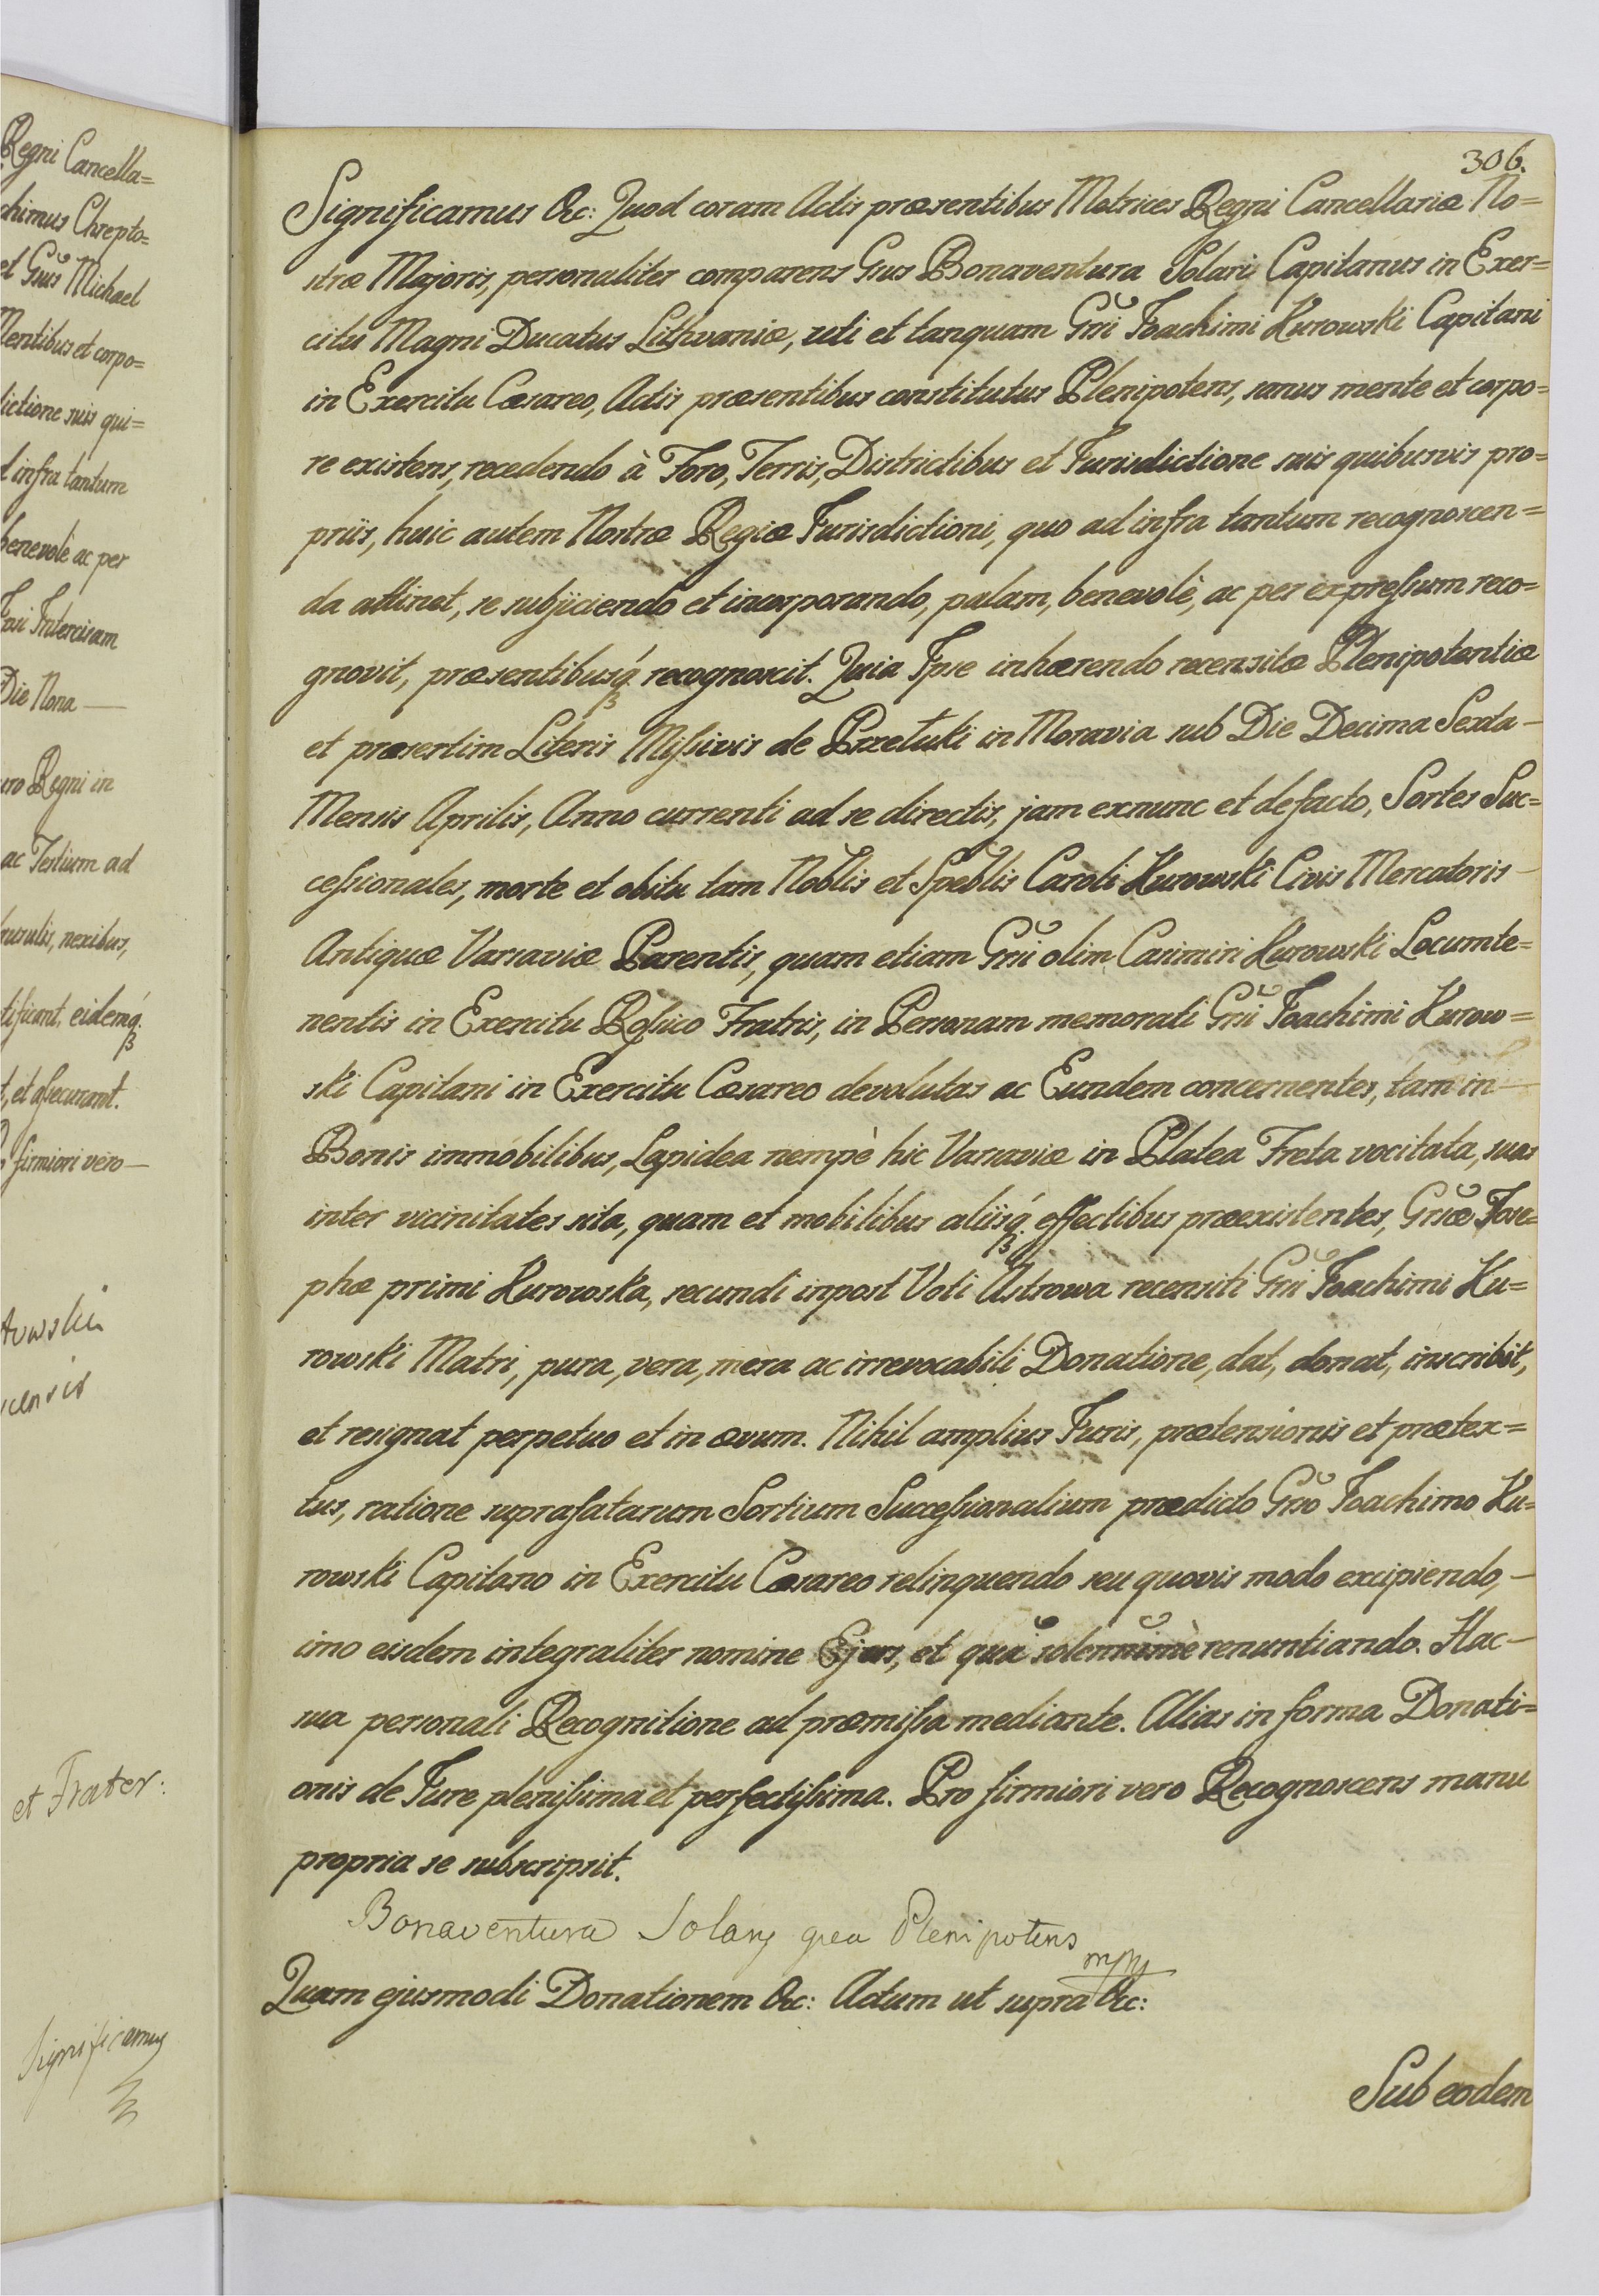 Regni Cancella=
chimus Chrepto=
et Gnus Michael
Mentibus et corpo=
dictione suis qui=
d infra tantum
benevolè ac per
Ipsi Intercisam
Die Nona —
uro Regni in
ac Testium ad
nexibus,
eidemq́
t, et assecurant.
o firmiori vero —
et Frater:
Significamus
306.
Significamus &c: Quod coram Actis præsentibus Metrices Regni Cancellariæ No=
stræ Majoris, personaliter comparens Gnus Bonaventura Solari Capitanus in Exer=
citu Magni Ducatus Lithvaniæ, uti et tanquam Gni Joachimi Kurowski Capitani
in Exercitu Cæsareo, Actis præsentibus constitutus Plenipotens, sanus mente et corpo=
re existens, recedendo à Foro, Terris, Districtibus et Jurisdictione suis quibusvis pro=
priis, huic autem Nostræ Regiæ Jurisdictioni, quo ad infra tantum recognoscen=
da attinet, se subjiciendo et incorporando, palam, benevolè, ac per expressum reco=
gnovit, præsentibusq́ recognoscit. Quia Ipse inhærendo recensitæ Plenipotentiæ
et præsertim Literis Missivis de Przetuki in Moravia sub Die Decima Sexta —
Mensis Aprilis, Anno currenti ad se directis, jam exnunc et defacto, Sortes Suc=
cessionales, morte et obitu tam Noblis et Speblis Caroli Kurowski Civis Mercatoris —
Antiquæ Varsaviæ Parentis, quam etiam Gni olim Casimiri Kurowski Locumte=
nentis in Exercitu Rossico Fratris, in Personam memorati Gni Joachimi Kurow=
ski Capitani in Exercitu Cæsareo devolutas ac Eundem concernentes, tam in —
Bonis immobilibus, Lapidea nempè hic Varsaviæ in Platea Freta vocitata, suas
inter vicinitates sita, quam et mobilibus aliisq́. effectibus præexistentes, Gnsæ Jose=
phæ primi Kurowska, secundi inpost Voti Astrowa recensiti Gni Joachimi Ku=
rowski Matri, pura, vera, mera ac irrevocabili Donatione, dat, donat, inscribit,
et resignat perpetuo et in ævum. Nihil amplius Juris, prætensionis et prætex=
tus, ratione suprafatarum Sortium Successionalium prædicto Gnso Joachimo Ku=
rowski Capitano in Exercitu Cæsareo relinquendo seu quovis modo excipiendo, —
imo eisdem integraliter nomine Ejus, et qua solennimè renuntiando. Hac —
sua personali Recognitione ad præmissa mediante. Alias in forma Donati=
onis de Jure plenissima et perfectissima. Pro firmiori vero Recognoscens manu
propria se subscripsit.
Bonaventura Solary qua Plenipotens
mpp
Quam ejusmodi Donationem &c: Actum ut supra &c:
Sub eodem